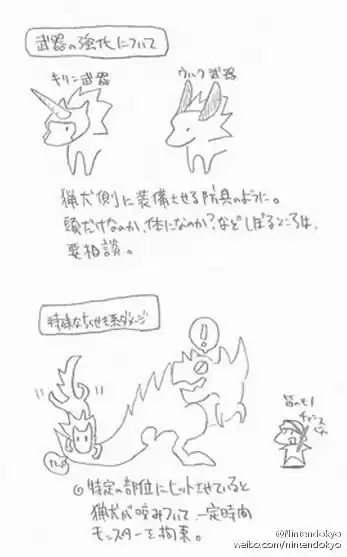 武器の強化について
キリン武器
ウルク武器
猟犬側に装備させる防具のように。
頭だけなのか、体になのか?などしぼるところは、
要相談。
!
特定の部位にヒットさせていると
猟犬が咬みついて一定時間
モンスターを拘束。
@Nintendokyo
weibo.com/nintendokyo